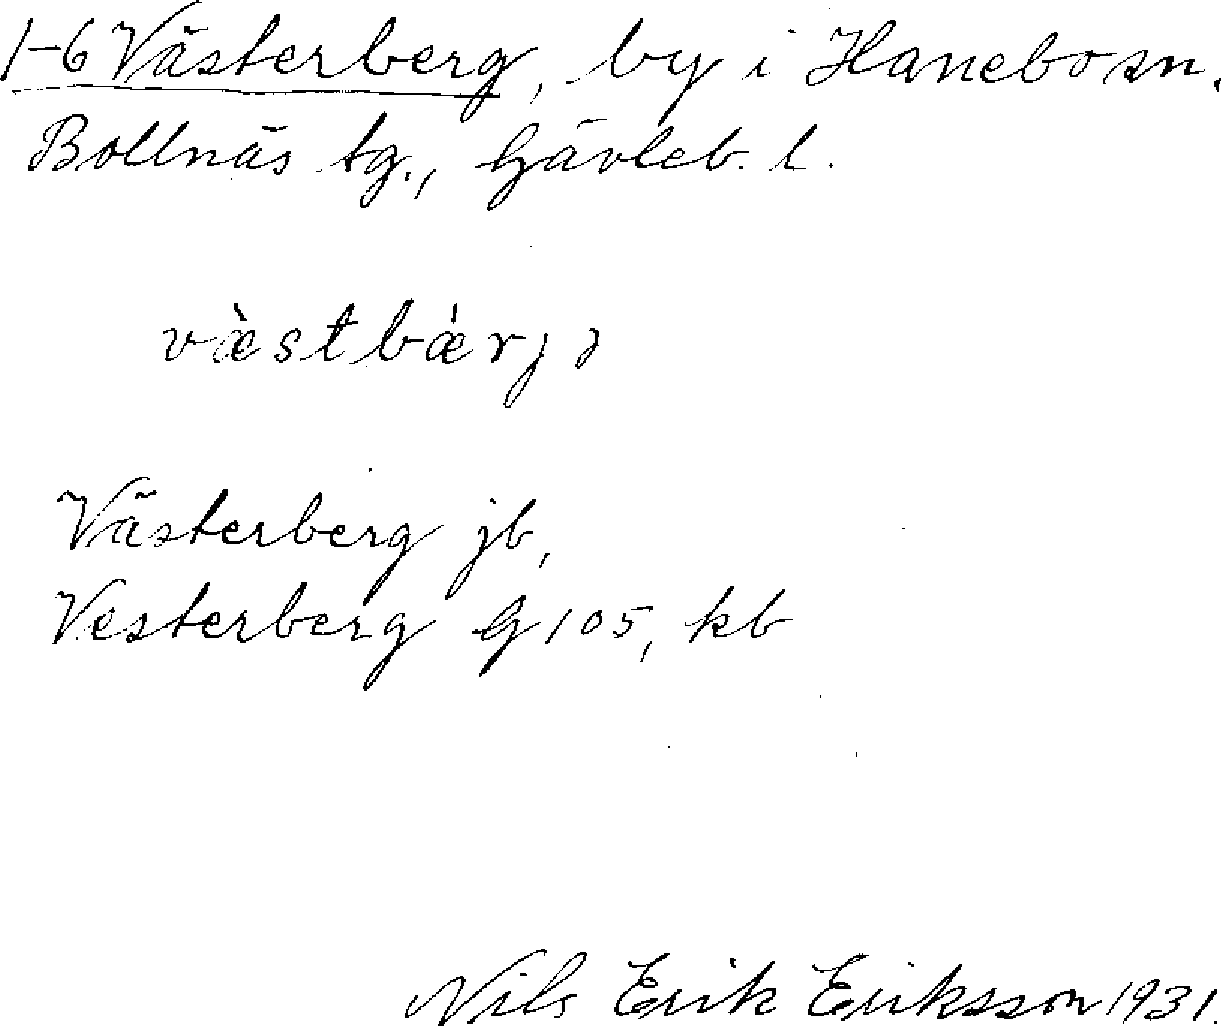 1-6 Västerberg, by i Hanebo sn.
Bollnäs tg., Gävleb. l.
væ̀stbæ̀rj ı
Västerberg jb,
Vesterberg G 105, kb
Nils Erik Eriksson 1931.